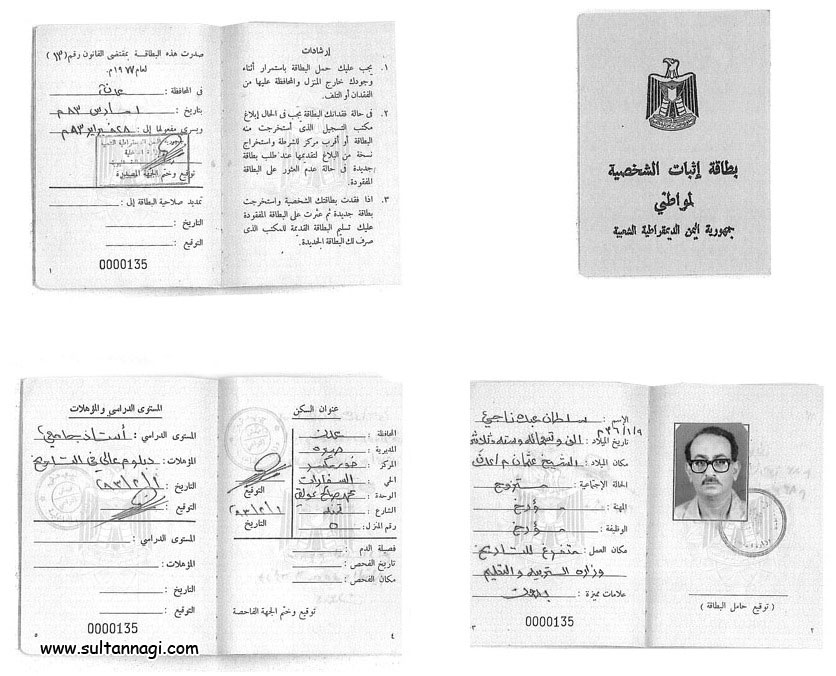 صدرت هذه البطاقة بمقتضى القانون رقم (١٣)
لعام ١٩٧٧م.
في المحافظة : عدن
بتاريخ : ١ مارس ٨٣م
ويسري مفعولها إلى : ٢٨ فبراير ٩٣م
توقيع وختم الجهة المصدرة
تمديد صلاحية البطاقة إلى :
التاريخ :
التوقيع :
0000135
١
إرشادات
١. يجب عليك حمل البطاقة باستمرار أثناء
وجودك خارج المنزل والمحافظة عليها من
الفقدان أو التلف.
٢. في حالة فقدانك البطاقة يجب في الحال إبلاغ
مكتب التسجيل الذى أستخرجت منه
البطاقة أو أقرب مركز للشرطة واستخراج
نسخة من البلاغ لتقديمها عند طلب بطاقة
جديدة في حالة عدم العثور على البطاقة
المفقودة.
٣. اذا فقدت بطاقتك الشخصية واستخرجت
بطاقة جديدة ثم عثرت على البطاقة المفقودة
عليك تسليم البطاقة القديمة للمكتب الذى
صرف لك البطاقة الجديدة.
بطاقة إثبات الشخصية
لمواطني
جمهورية اليمن الديمقراطية الشعبية
عنوان السكن
المحافظة : عدن
المديرية :
المركز : خورمكسر
الحي : السفارات
الوحدة : محمد صالح عولقي
الشارع :
رقم المنزل : ٥
التوقيع
التاريخ
فصيلة الدم :
تاريخ الفحص :
مكان الفحص :
توقيع وختم الجهة الفاحصة
٤
المستوى الدراسي والمؤهلات
المستوى الدراسي : أستاذ جامعي
المؤهلات : دبلوم عالي في التاريخ
التاريخ :
التوقيع :
المستوى الدراسي :
المؤهلات :
التاريخ :
التوقيع :
0000135
٥
www.sultannagi.com
الإسم : سلطان عبده ناجي
تاريخ الميلاد :
مكان الميلاد : الشيخ عثمان م/عدن
الحالة الإجتماعية : متزوج
المهنة : مؤرخ
الوظيفة : مؤرخ
مكان العمل : متفرغ للتاريخ
وزارة التربية والتعليم
علامات مميزة :
0000135
٣
( توقيع حامل البطاقة )
٢